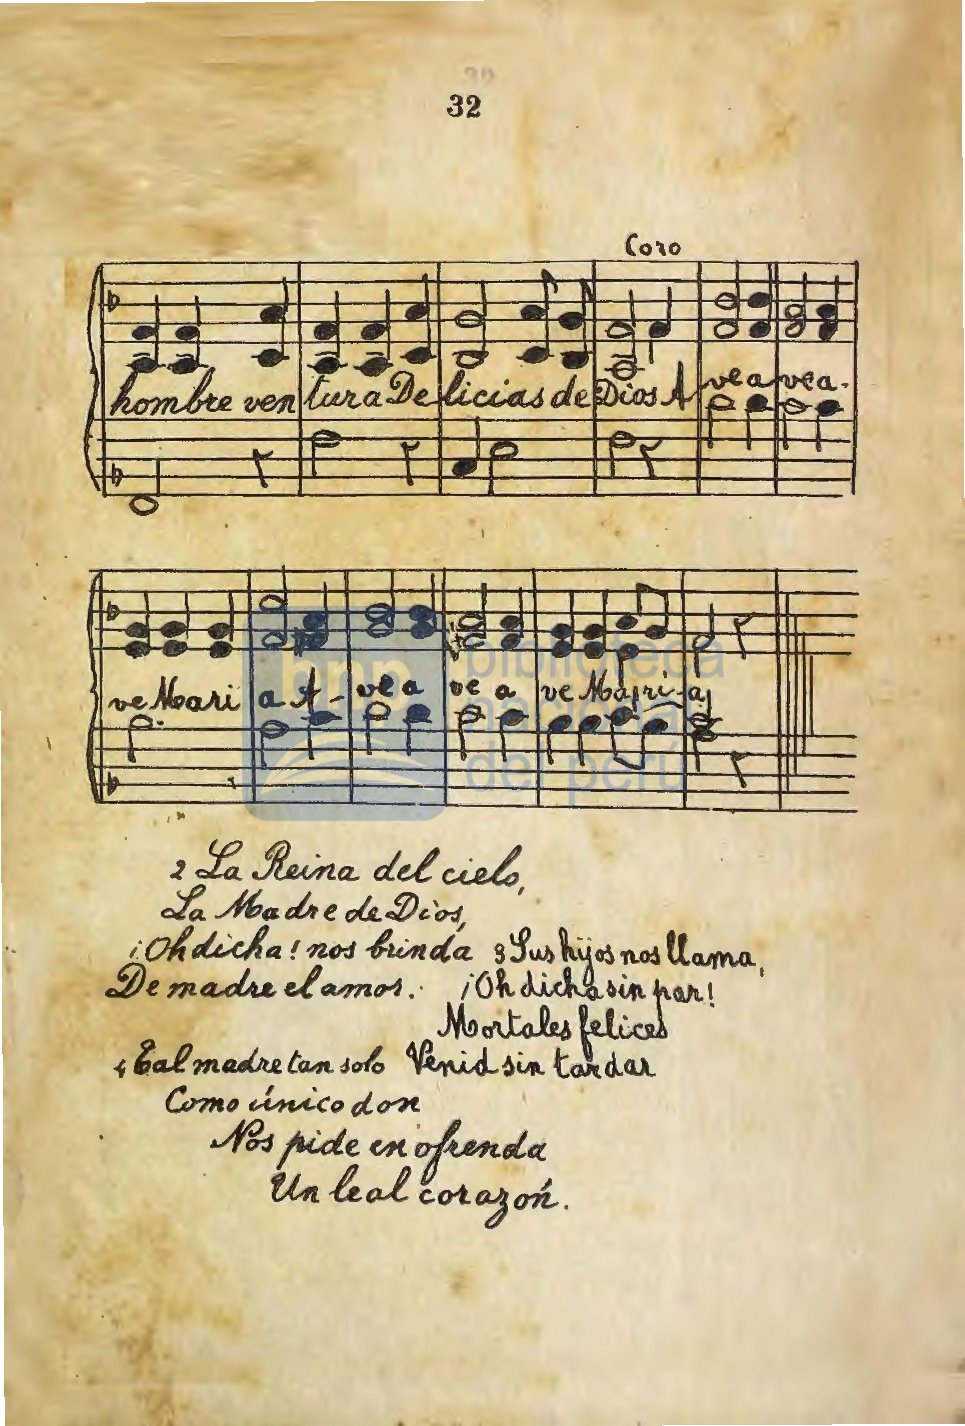 32
Coro
hombre ven tura De licias de Dios A ve a ve a-
ve Mari a A- ve a ve a ve Ma ri-a
bnp biblioteca
nacional
del perú
2 La Reina del cielo,
La Madre de Dios,
¡Oh dicha! nos brinda
De madre el amor.
3 Sus hijos nos llama,
¡Oh dicha sin par!
Mortales felices
Venid sin tardar
4 Tal madre tan solo
Como único don
Nos pide en ofrenda
Un leal corazón.